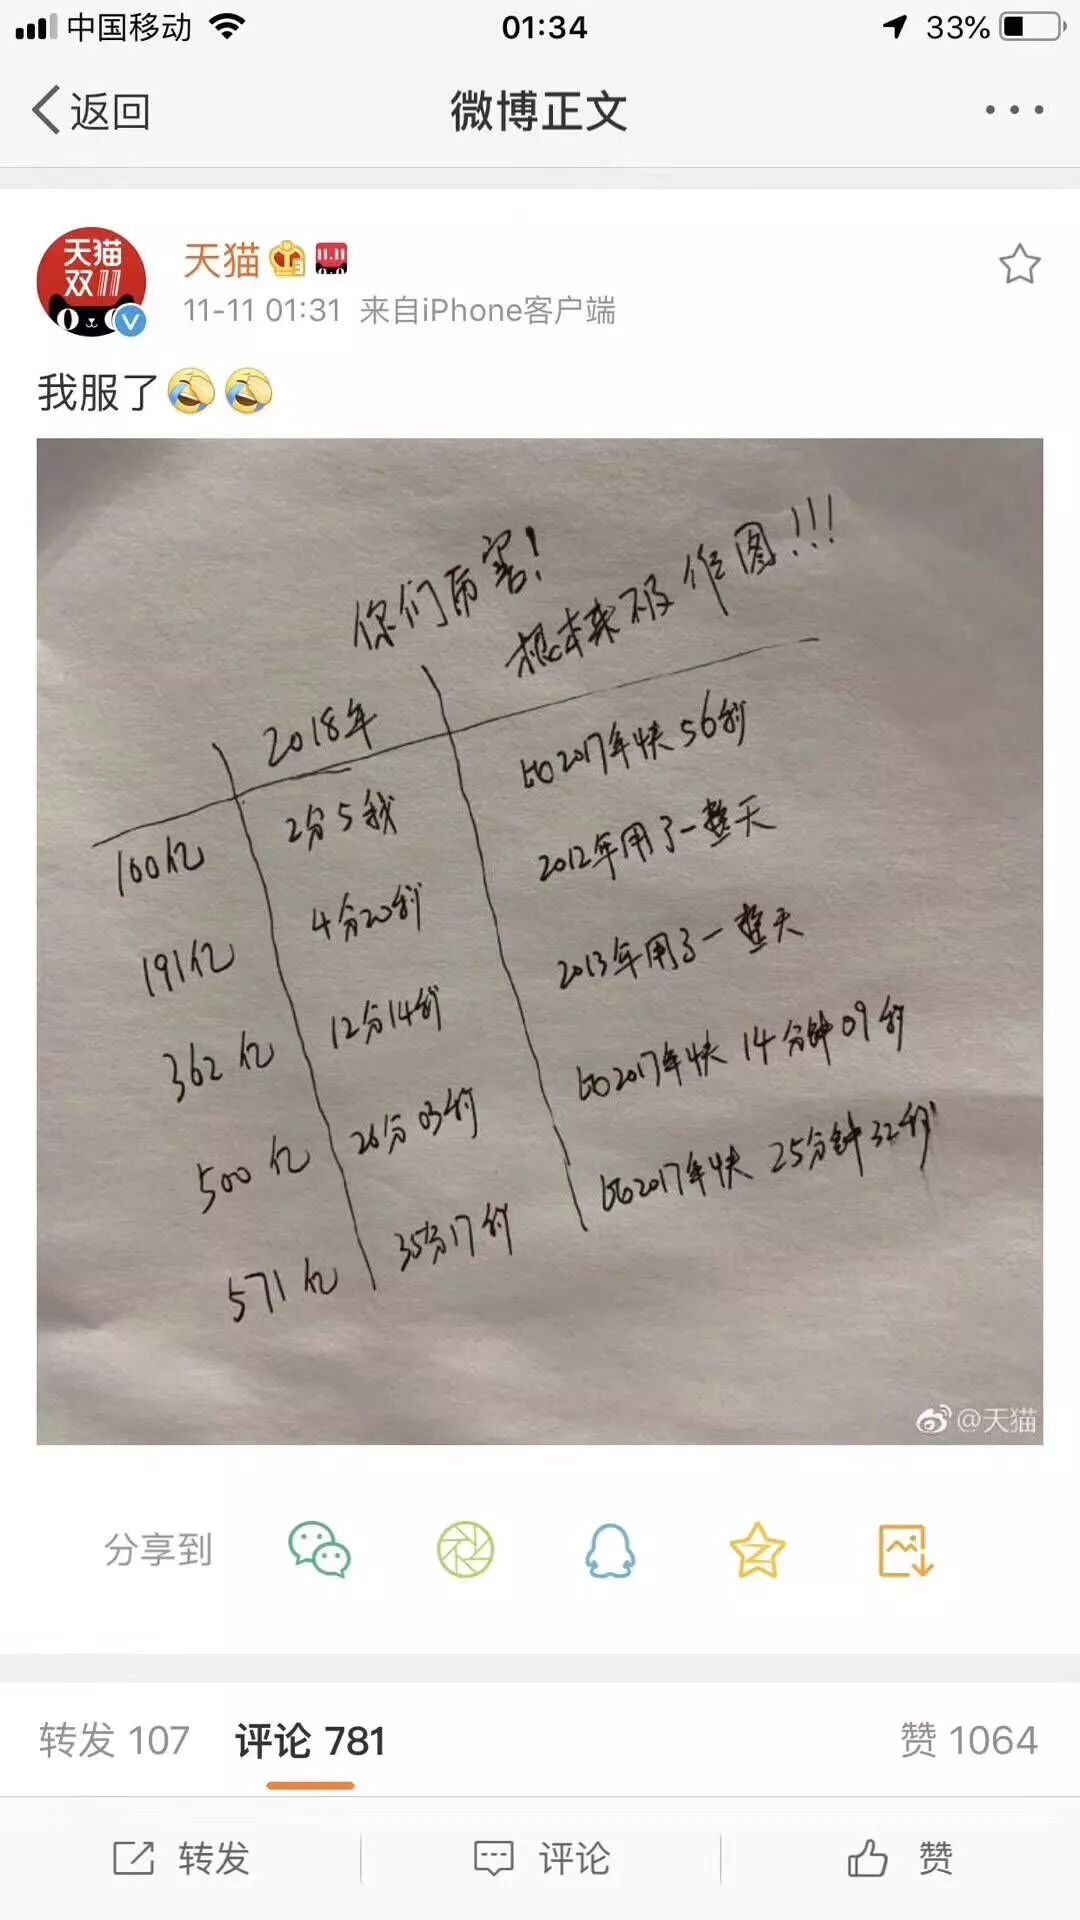 中国移动 01:34 33%
返回 微博正文
天猫
双11
天猫 11.11
11-11 01:31 来自iPhone客户端
我服了
你们厉害!
根本来不及作图!!!
2018年
100亿 2分5秒 比2017年快56秒
191亿 4分20秒 2012年用了一整天
362亿 12分14秒 2013年用了一整天
500亿 26分03秒 比2017年快14分钟09秒
571亿 35分17秒 比2017年快25分钟32秒
@天猫
分享到
转发 107 评论 781 赞 1064
转发 评论 赞